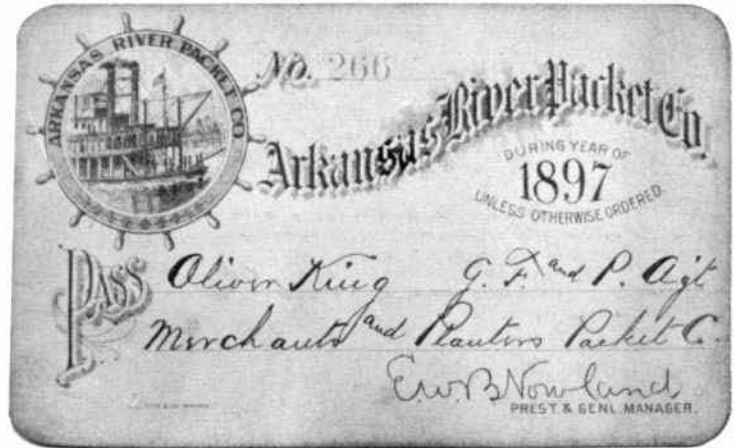 ARKANSAS RIVER PACKET CO
No. 266
Arkansas River Packet Co.
DURING YEAR OF
1897
UNLESS OTHERWISE ORDERED.
PASS Oliver King G. F. and P. Agt
Merchants and Planters Packet Co.
E.W.B. Nowland
PREST & GENL. MANAGER.